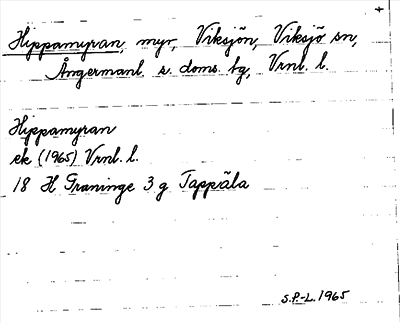 Hippamyran, myr, Viksjön, Viksjö sn,
Ångermanl. s. doms. tg, Vrnl. l.
Hippamyran
ek (1965) Vrnl. l.
18 H Graninge 3 g Tappäla
S.P.-L. 1965